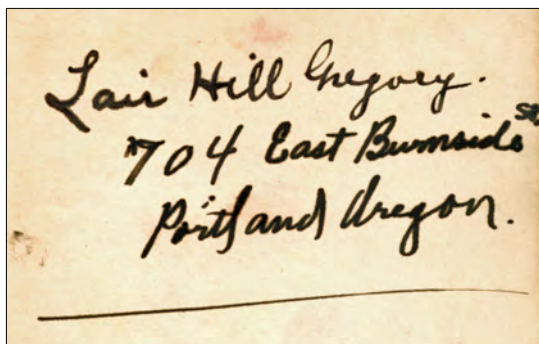 Lair Hill Gregory.
704 East Burnside St.
Portland Oregon.